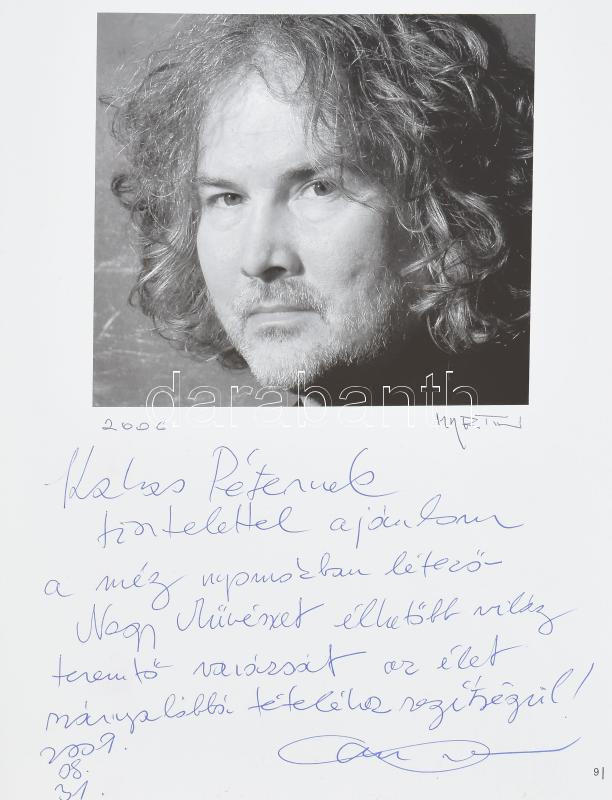 darabanth
2006
Kakas Péternek
tisztelettel ajánlom
a még nyomokban létező
Nagy Művészet élhetőbb világ
teremtő varázsát az élet
szárnyalóbbá tételéhez segítségül!
2009.
08.
31.
9|